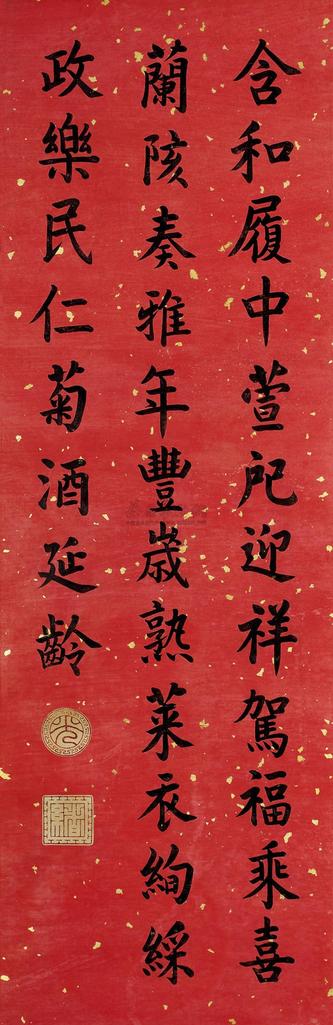 含和履中萱戺迎祥駕福乘喜
蘭陔奏雅年豐歲熟萊衣絢綵
政樂民仁菊酒延齡